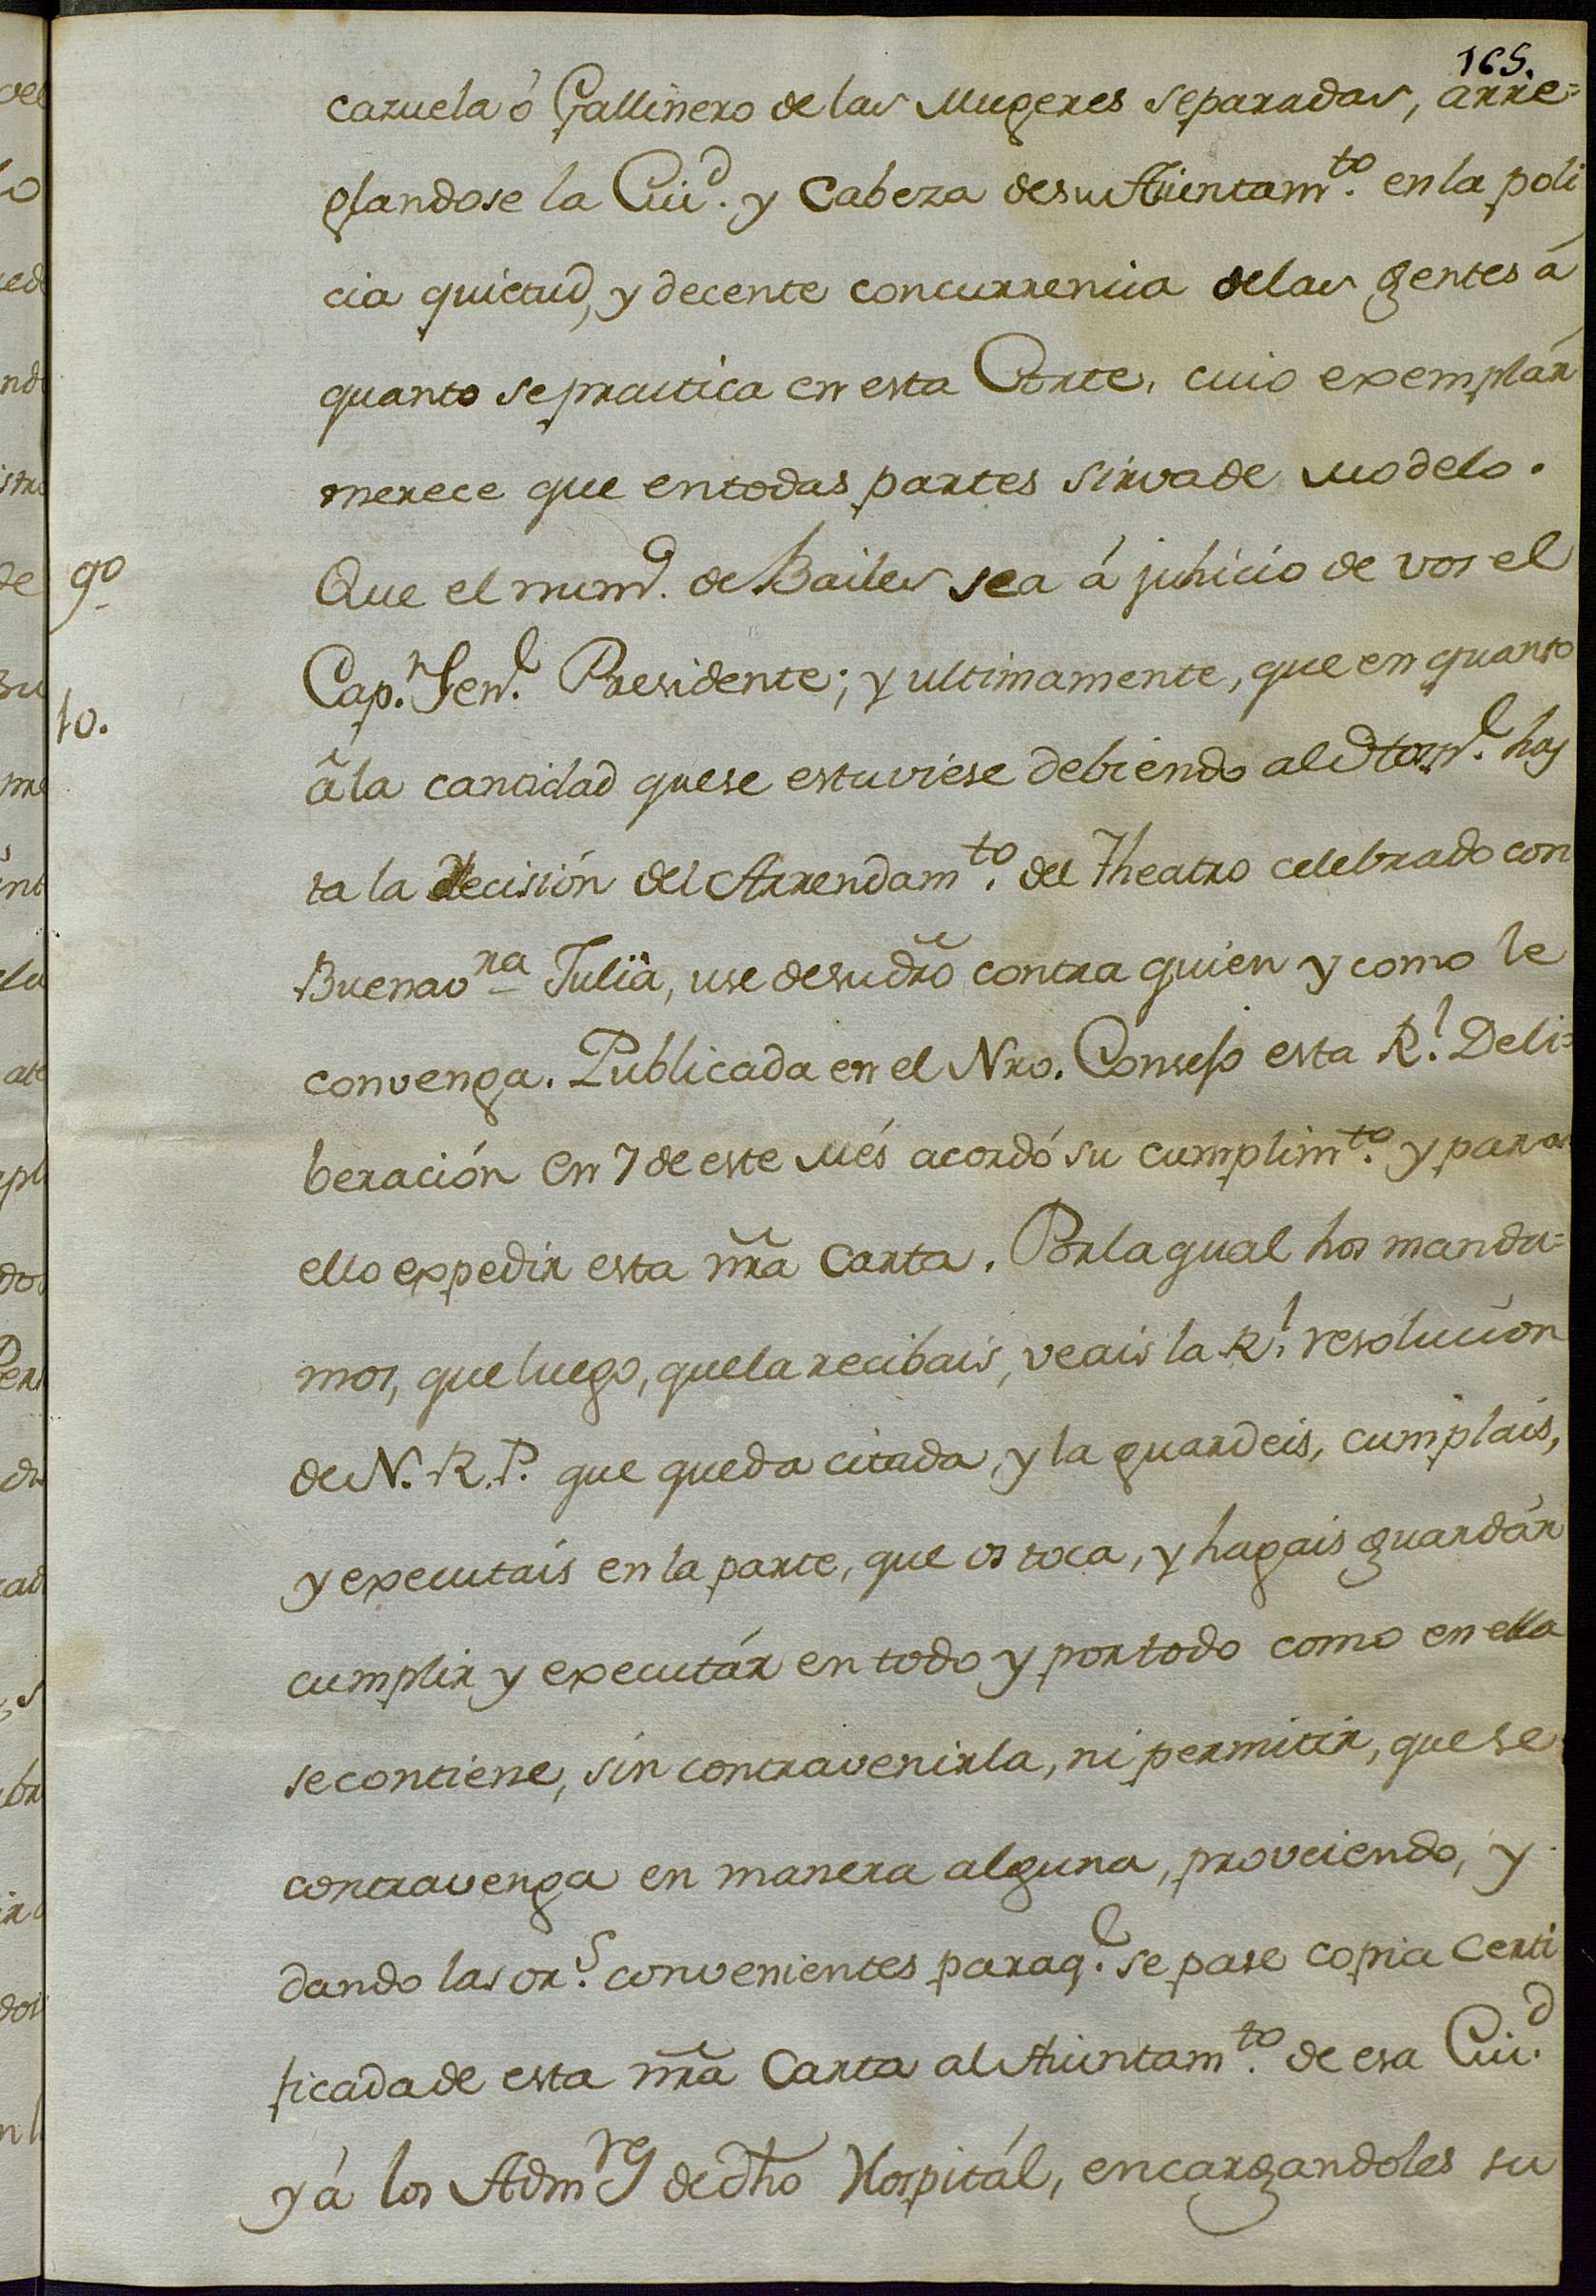 165.
cazuela ó Gallinero de las Mugeres separadas, arre=
glandose la Ciu.d y Cabeza de su Aiuntam.to en la poli
cia quietud, y decente concurrencia de las gentes á
quanto se practica en esta Corte, cuio exemplár
merece que en todas partes sirva de Modelo.
9o Que el num.o de Bailes sea á juhicio de vos el
Cap.n Gen.l Presidente; y ultimamente, que en quanto
10. á la cantidad que se estuviese debiendo al Hosp.l has
ta la decisión del Arrendam.to del Theatro celebrado con
Buenav.ra Julià, use de su dro contra quien y como le
convenga. Publicada en el Nro. Consejo esta R.l Deli=
beración en 7 de este Més acordó su cumplim.to y para
ello expedir esta nra Carta. Por la qual hos manda=
mos, que luego, que la recibais, veais la R.l resolucion
de N. R. P. que queda citada, y la guardeis, cumplais,
y executais en la parte, que os toca, y hagais guardár
cumplir y executár en todo y por todo como en ella
se contiene, sin contravenirla, ni permitir, que se
contravenga en manera alguna, proveiendo, y
dando las or.s convenientes paraq.e se pase copia Certi
ficada de esta nra Carta al Aiuntam.to de esa Ciu.d
y á los Adm.res de dho Hospitál, encargandoles su